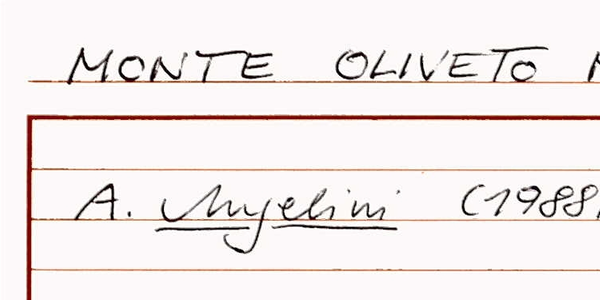 MONTE OLIVETO M
A. Angelini (1988)